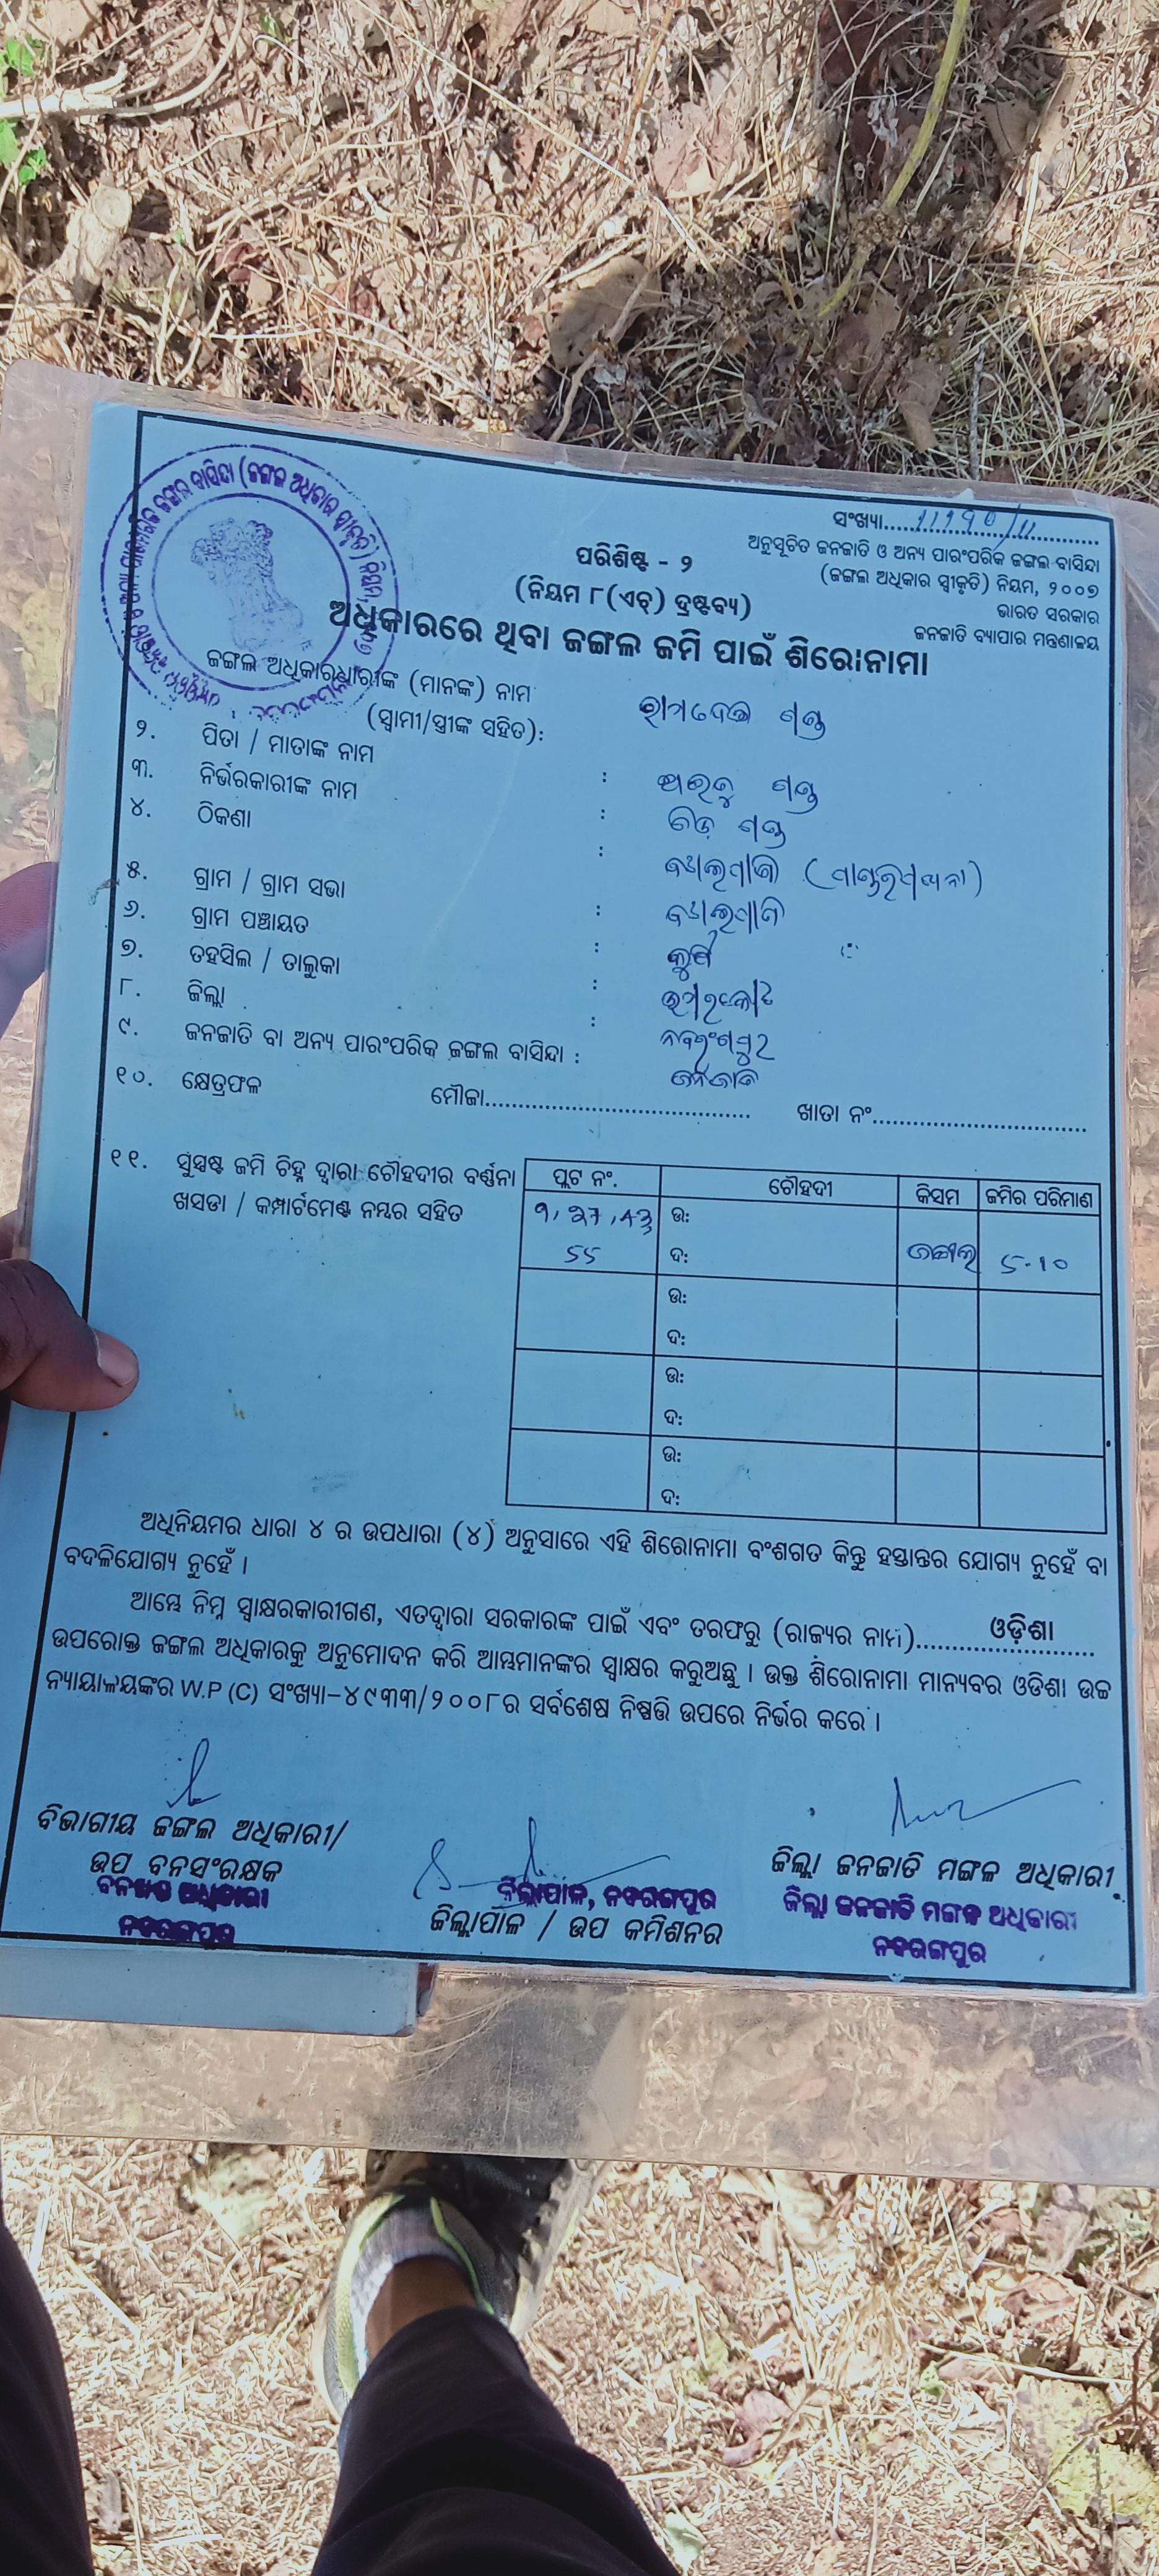 ସଂଖ୍ୟା.......11190/11.......
ଅନୁସୂଚିତ ଜନଜାତି ଓ ଅନ୍ୟ ପାରଂପରିକ ଜଙ୍ଗଲ ବାସିନ୍ଦା
(ଜଙ୍ଗଲ ଅଧିକାର ସ୍ୱୀକୃତି) ନିୟମ, ୨୦୦୭
ଭାରତ ସରକାର
ଜନଜାତି ବ୍ୟାପାର ମନ୍ତ୍ରଣାଳୟ
ପରିଶିଷ୍ଟ - ୨
(ନିୟମ ୮(ଏଚ୍) ଦ୍ରଷ୍ଟବ୍ୟ)
ଅଧିକାରରେ ଥିବା ଜଙ୍ଗଲ ଜମି ପାଇଁ ଶିରୋନାମା
ଜଙ୍ଗଲ ଅଧିକାରଧାରୀଙ୍କ (ମାନଙ୍କ) ନାମ
(ସ୍ୱାମୀ/ସ୍ତ୍ରୀଙ୍କ ସହିତ): ରାମଦେଇ ଗଣ୍ଡ
୨. ପିତା / ମାତାଙ୍କ ନାମ : ଅରଜୁ ଗଣ୍ଡ
୩. ନିର୍ଭରକାରୀଙ୍କ ନାମ : ଗଣ୍ଡ
୪. ଠିକଣା :
୫. ଗ୍ରାମ / ଗ୍ରାମ ସଭା :
୬. ଗ୍ରାମ ପଞ୍ଚାୟତ :
୭. ତହସିଲ / ତାଲୁକା : ଉମରକୋଟ
୮. ଜିଲ୍ଲା : ନବରଂଗପୁର
୯. ଜନଜାତି ବା ଅନ୍ୟ ପାରଂପରିକ ଜଙ୍ଗଲ ବାସିନ୍ଦା : ଜନଜାତି
୧୦. କ୍ଷେତ୍ରଫଳ ମୌଜା............ ଖାତା ନଂ............
୧୧. ସୁସ୍ପଷ୍ଟ ଜମି ଚିହ୍ନ ଦ୍ୱାରା ଚୌହଦୀର ବର୍ଣ୍ଣନା
ଖସଡା / କମ୍ପାର୍ଟମେଣ୍ଟ ନମ୍ବର ସହିତ
ପ୍ଲଟ ନଂ. ଚୌହଦୀ କିସମ ଜମିର ପରିମାଣ
ଉ:
55 ଦ: ଜଙ୍ଗଲ 5.10
ଉ:
ଦ:
ଉ:
ଦ:
ଉ:
ଦ:
ଅଧିନିୟମର ଧାରା ୪ ର ଉପଧାରା (୪) ଅନୁସାରେ ଏହି ଶିରୋନାମା ବଂଶଗତ କିନ୍ତୁ ହସ୍ତାନ୍ତର ଯୋଗ୍ୟ ନୁହେଁ ବା
ବଦଳିଯୋଗ୍ୟ ନୁହେଁ ।
ଆମ୍ଭେ ନିମ୍ନ ସ୍ୱାକ୍ଷରକାରୀଗଣ, ଏତଦ୍ୱାରା ସରକାରଙ୍କ ପାଇଁ ଏବଂ ତରଫରୁ (ରାଜ୍ୟର ନାମ)......ଓଡ଼ିଶା......
ଉପରୋକ୍ତ ଜଙ୍ଗଲ ଅଧିକାରକୁ ଅନୁମୋଦନ କରି ଆମ୍ଭମାନଙ୍କର ସ୍ୱାକ୍ଷର କରୁଅଛୁ । ଉକ୍ତ ଶିରୋନାମା ମାନ୍ୟବର ଓଡିଶା ଉଚ୍ଚ
ନ୍ୟାୟାଳୟଙ୍କର W.P (C) ସଂଖ୍ୟା-୪୯୩୩/୨୦୦୮ର ସର୍ବଶେଷ ନିଷ୍ପତ୍ତି ଉପରେ ନିର୍ଭର କରେ ।
ବିଭାଗୀୟ ଜଙ୍ଗଲ ଅଧିକାରୀ/
ଉପ ବନସଂରକ୍ଷକ
ବନଖଣ୍ଡ ଅଧିକାରୀ
ନବରଙ୍ଗପୁର
ଜିଲ୍ଲାପାଳ, ନବରଙ୍ଗପୁର
ଜିଲ୍ଲାପାଳ / ଉପ କମିଶନର
ଜିଲ୍ଲା ଜନଜାତି ମଙ୍ଗଳ ଅଧିକାରୀ
ଜିଲ୍ଲା ଜନଜାତି ମଙ୍ଗଳ ଅଧିକାରୀ
ନବରଙ୍ଗପୁର